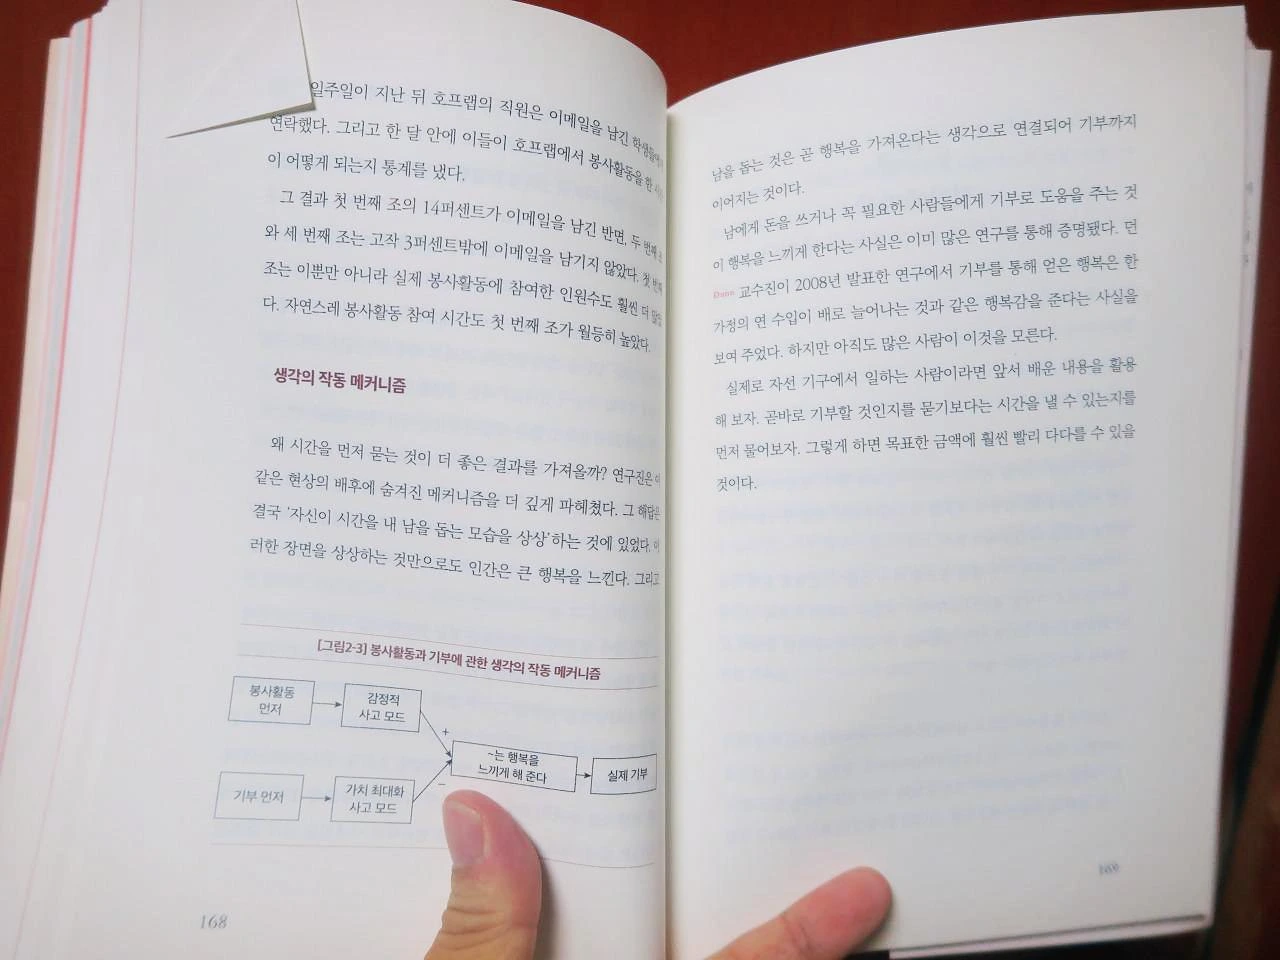 일주일이 지난 뒤 호프랩의 직원은 이메일을 남긴 학생들에게
연락했다. 그리고 한 달 안에 이들이 호프랩에서 봉사활동을 한
이 어떻게 되는지 통계를 냈다.
그 결과 첫 번째 조의 14퍼센트가 이메일을 남긴 반면, 두 번째 조
와 세 번째 조는 고작 3퍼센트밖에 이메일을 남기지 않았다. 첫 번째
조는 이뿐만 아니라 실제 봉사활동에 참여한 인원수도 훨씬 더 많았
다. 자연스레 봉사활동 참여 시간도 첫 번째 조가 월등히 높았다.
생각의 작동 메커니즘
왜 시간을 먼저 묻는 것이 더 좋은 결과를 가져올까? 연구진은 이
같은 현상의 배후에 숨겨진 메커니즘을 더 깊게 파헤쳤다. 그 해답은
결국 ‘자신이 시간을 내 남을 돕는 모습을 상상’하는 것에 있었다. 이
러한 장면을 상상하는 것만으로도 인간은 큰 행복을 느낀다. 그리고
[그림2-3] 봉사활동과 기부에 관한 생각의 작동 메커니즘
봉사활동
먼저
감정적
사고 모드
+
~는 행복을
느끼게 해 준다
실제 기부
기부 먼저
가치 최대화
사고 모드
−
168
남을 돕는 것은 곧 행복을 가져온다는 생각으로 연결되어 기부까지
이어지는 것이다.
남에게 돈을 쓰거나 꼭 필요한 사람들에게 기부로 도움을 주는 것
이 행복을 느끼게 한다는 사실은 이미 많은 연구를 통해 증명됐다. 던
Dunn 교수진이 2008년 발표한 연구에서 기부를 통해 얻은 행복은 한
가정의 연 수입이 배로 늘어나는 것과 같은 행복감을 준다는 사실을
보여 주었다. 하지만 아직도 많은 사람이 이것을 모른다.
실제로 자선 기구에서 일하는 사람이라면 앞서 배운 내용을 활용
해 보자. 곧바로 기부할 것인지를 묻기보다는 시간을 낼 수 있는지를
먼저 물어보자. 그렇게 하면 목표한 금액에 훨씬 빨리 다다를 수 있을
것이다.
169